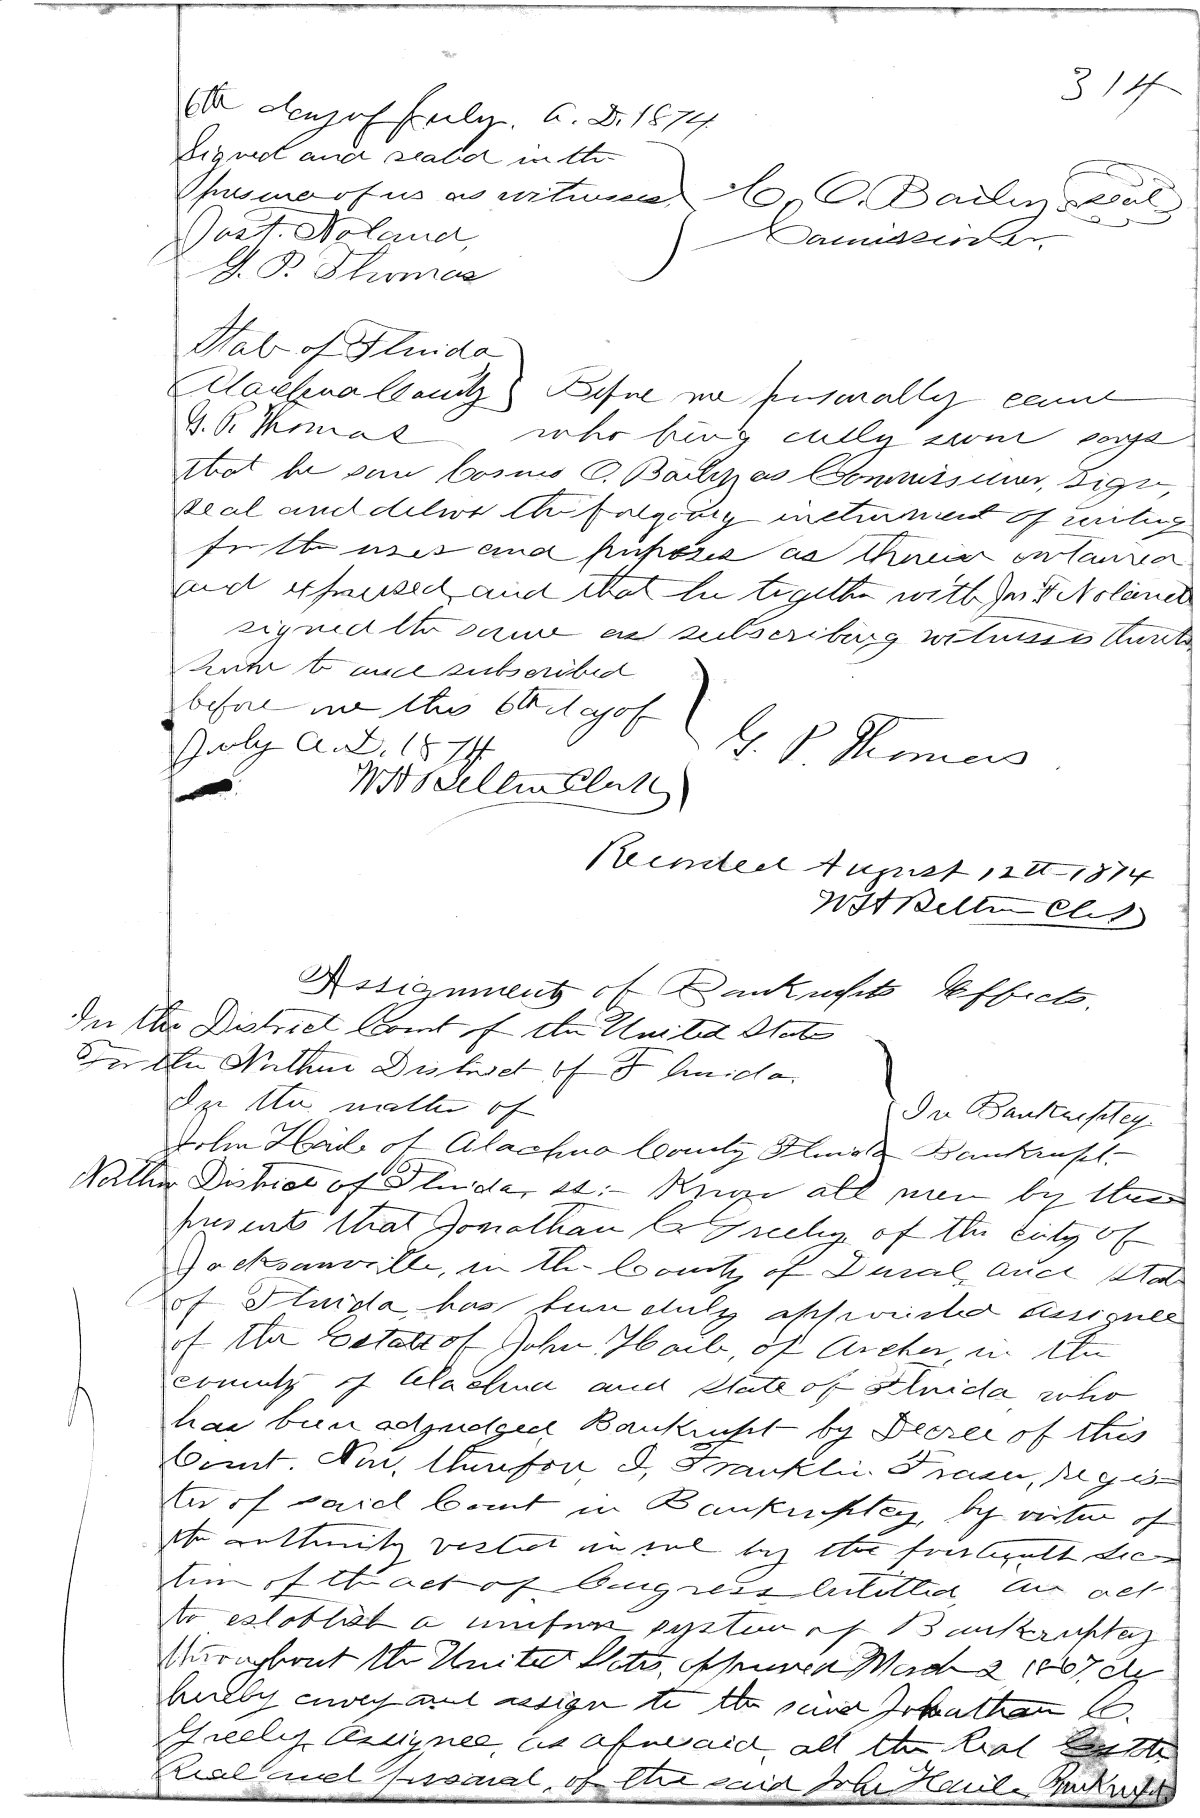 314
6th day of July, A. D. 1874
Signed and sealed in the
presence of us as witnesses
C. O. Bailey seal
Commissioner.
Jas. F. Noland,
G. P. Thomas
State of Florida
Alachua County Before me personally came
G. P. Thomas who being duly sworn says
that he saw Cosmo O. Bailey as Commissioner, sign,
seal and deliver the foregoing instrument of writing
for the uses and purposes as therein contained
and expressed, and that he together with Jas F Noland
signed the same as subscribing witnesses thereto
Sworn to and subscribed
before me this 6th day of
July A.D. 1874
G. P. Thomas
W H Belton Clerk
Recorded August 12th 1874
W H Belton Clerk
Assignment of Bankrupts Effects.
In the District Court of the United States
For the Northern District of Florida.
In the matter of
In Bankruptcy.
John Haile of Alachua County Florida Bankrupt.
Northern District of Florida, ss:- Know all men by these
presents that Jonathan C Greeley of the city of
Jacksonville, in the County of Duval, and State
of Florida, has been duly appointed assignee
of the Estate of John Haile, of Archer, in the
county of Alachua and State of Florida, who
has been adjudged Bankrupt by Decree of this
Court. Now, therefore, I, Franklin Fraser, regis-
ter of said Court in Bankruptcy, by virtue of
the authority vested in me by the fourteenth Sec-
tion of the act of Congress Entitled, An act
to establish a uniform system of Bankruptcy
throughout the United States, approved March 2 1867, do
hereby convey and assign to the said Jonathan C.
Greeley, Assignee, as aforesaid, all the Real Estate
Real and personal, of the said John Haile, Bankrupt,